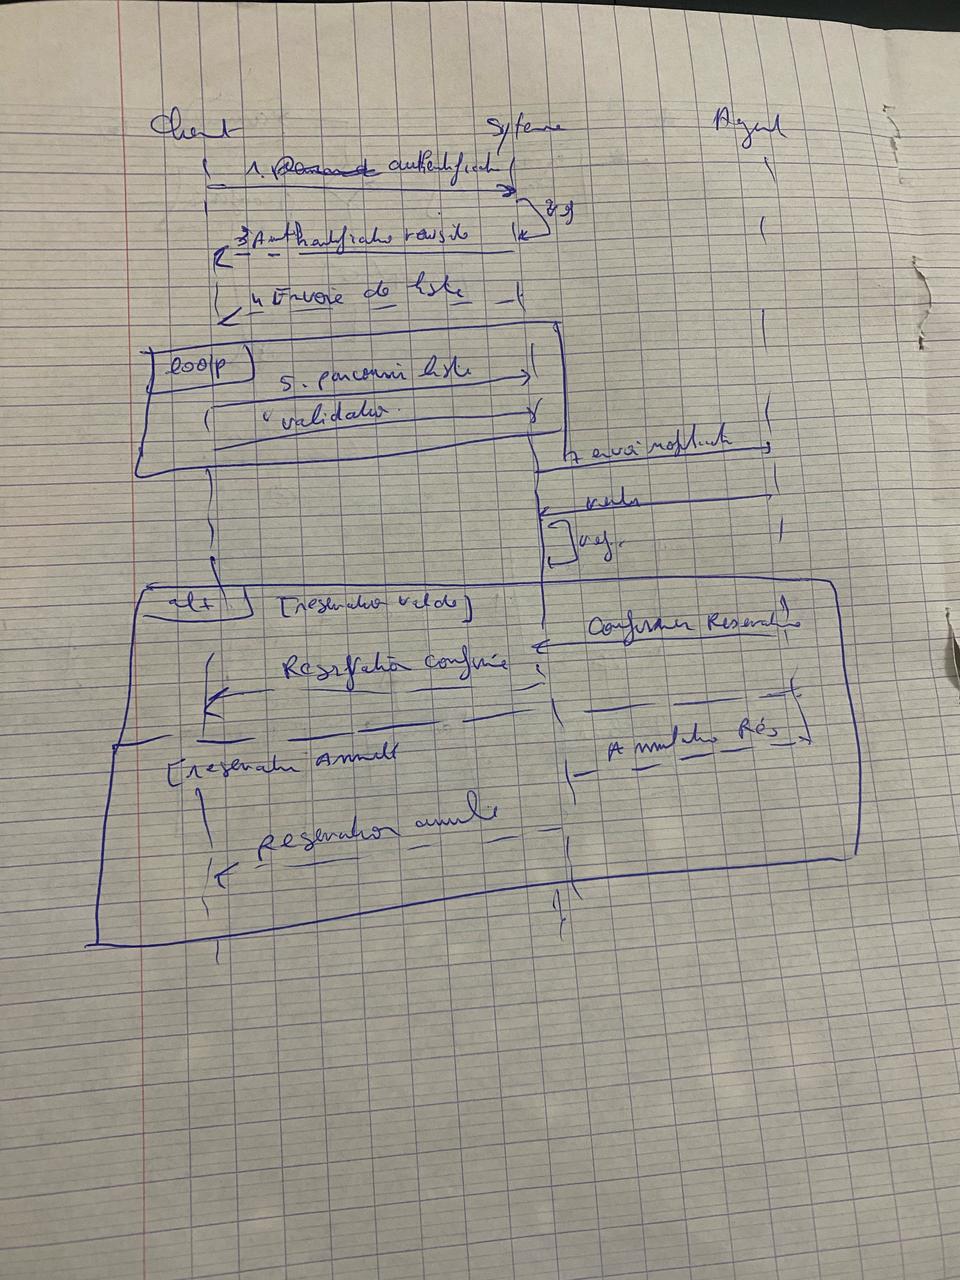 Client Systeme Agent
1. authentificatio
3 Authentificatio réussite
4 Envoie de liste
loop
5. parcourir liste
validatio
7 envoi
ver.
alt [reservatio valide]
Confirmer Reservatio
Reservation confirmé
Annulatio Rés
[reservatio Annulé
Reservation annulé